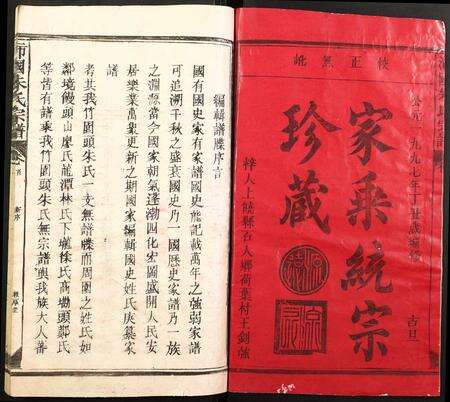 佑正無毗
公元一九九七年丁丑歲編修
古旦
家乘統宗
珍藏
梓人上饒縣石人鄉荷葉村王劍強
編輯譜牒序言
國有國史家有家譜國史能記載萬年之強弱家譜
可追溯千秋之盛衰國史乃一國歷史家譜乃一族
之淵源當今國家朝氣蓬渤四化宏圖盛開人民安
居樂業萬象更新之期國家編輯國史姓氏庚纂家
譜
者其我竹園頭朱氏一支無譜牒而周圍之姓氏如
鄰境饅頭山廖氏龍潭林氏下壚徐氏高塝頭鄭氏
等皆有譜乘我竹園頭朱氏無宗譜與我族大人蕃
沛國朱氏宗譜
卷首
新序